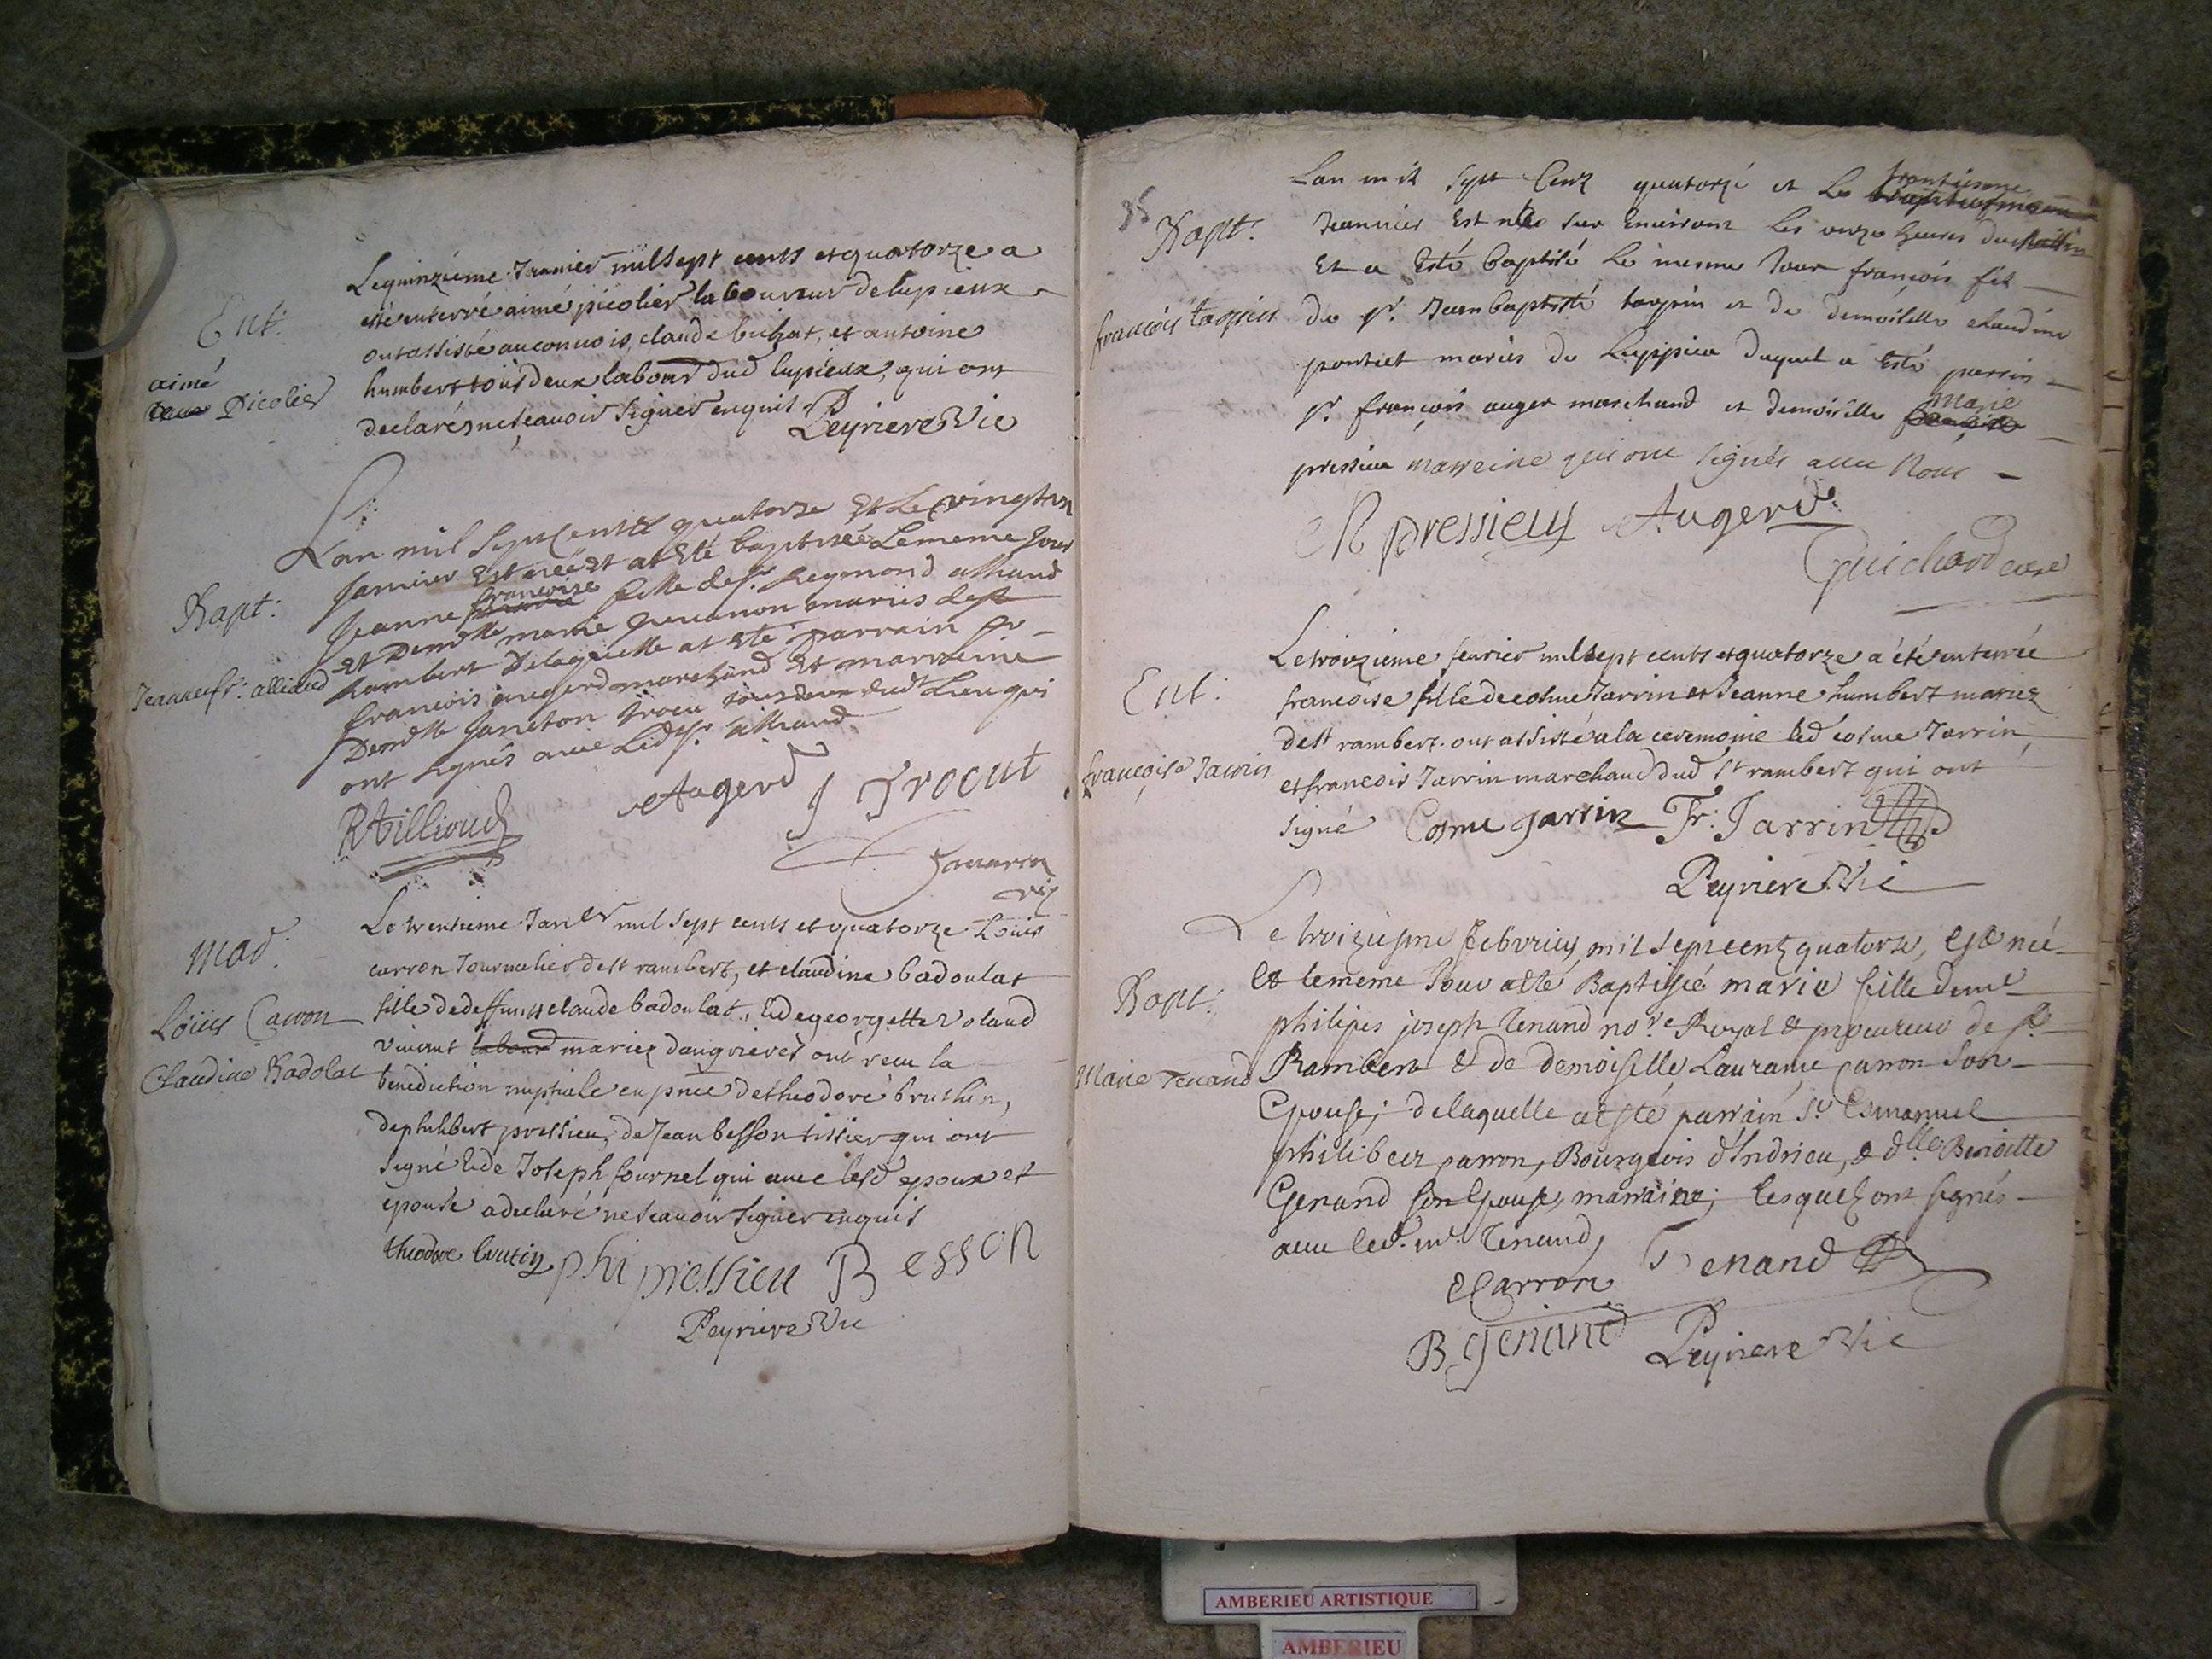 Ent:
aimé
Picolier
Le quinzieme Janvier mil sept cents et quatorze a
esté enterré aimé picolier laboureur de lupieux
ont assisté au convois, claude bichat, et antoine
humbert tous deux labour dud lupieux, qui ont
declarés ne sçavoir signer enquis
Peyriere Vic
Bapt:
Jeanne fr: alliaud
Lan mil sept cents quatorze Et Le vingt un
Janvier Est née Et at Esté baptisée Le meme Jour
Jeanne francoise fille de sr. Reymond alliaud
Et Demlle marie mariés de st
Rambert De laquelle at Esté parrain sr
francois augerd marchand Et marreine
Demlle Janeton trocu tous deux dudt Lieu qui
ont signés avec Led sr. alliaud
RAilliaud
Augerd
J Trocut
vic
Mad.
Loüis Carron
Claudine Badolat
Le trentieme Janer mil sept cents et quatorze Louis
carron Journalier de st rambert, et claudine badoulat
fille de deffunt claude badoulat, et de georgette voland
vivant labour mariez d'angrieres ont receu la
benediction nuptiale en pnce de theodore bruthin,
de philibert pressieu, de Jean besson tissier qui ont
signé et de Joseph fournel qui avec lesd epoux et
epouse a declaré ne scavoir signer enquis
theodore brutin phi pressieu Besson
Peyriere Vic
35
Bapt.
françois tarpin
Lan mil sept Cent quatorze et Le trentiesme
Jeanvier Est né sur Environt Les onze heures du mattin
Et a Esté baptisé Le mesme Jour francois fils
de sr. Jean baptiste tarpin et de demoiselle claudine
pontiet mariés de Luppieu duquel a Esté parrin
sr. françois auger marchand et demoiselle Marie
pressieu marreine qui ont signés avec Nous
M pressieux Augerd
Guichard curé
Ent:
françoise Jarrin
Le troizieme fevrier mil sept cents et quatorze a été enterrée
francoise fille de cosme Jarrin et Jeanne humbert mariez
de st rambert. ont assisté a la ceremonie led cosme Jarrin,
et francois Jarrin marchand dud st rambert qui ont
signé Cosme Jarrin Fr: Jarrin
Peyriere Vic
Bapt:
Marie Tenand
Le troiziesme febvrier mil sept cent quatorze, est née
& le meme Jour a esté Baptisée marie fille de me
philipes joseph Tenand nore Royal & procureur de st
Rambert & de demoiselle Laurance carron son
Epouse; de laquelle a esté parrain sr Esmanuel
philibert carron, Bourgeois d'Indrieu, & dlle Benoitte
Genand son Epouse, marraine; lesquels ont signés
avec led. me. Tenand,
Tenand
Carron
B genand Peyriere Vic
AMBERIEU ARTISTIQUE
AMBERIEU